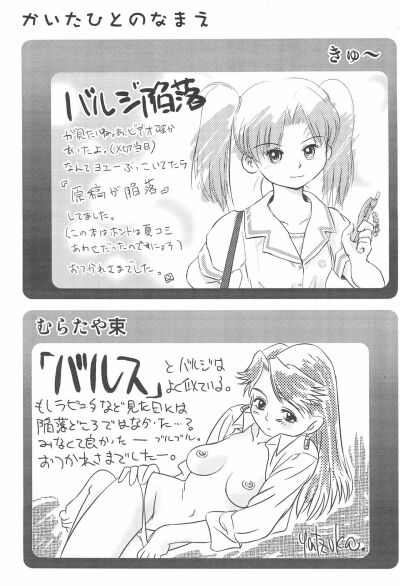 かいたひとのなまえ
きゅ〜
バルジ陥落
が見たいねぇ、あ、ビデオ確か
あったよ。(〆切当日)
なんてヨユーぶっこいてたら
『原稿が陥落』
してました。
(この本はホントは夏コミ
あわせだったのですれにょう)
おつかれさまでした。
むらたや束
「バルス」とバルジは
よく似ている。
もしラピュタなど見た日には
陥落どころではなかった…る
みなくて良かったー ブルブル。
おつかれさまでしたー。
yatzuka.